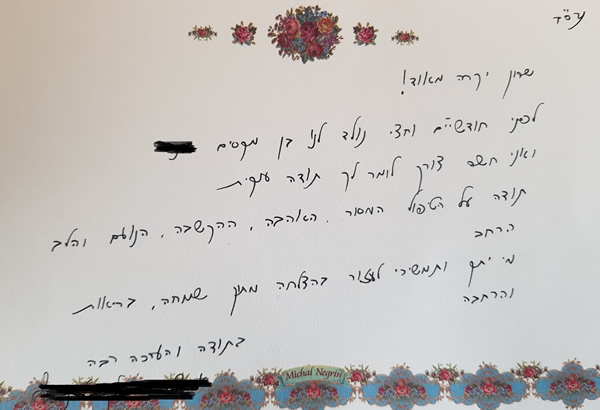 בס"ד
שרון יקרה מאוד!
לפני חודשיים וחצי נולד לנו בן מקסים
ואני חשה צורך לומר לך תודה ענקית
תודה על הטיפול המסור, האהבה, ההקשבה, הנועם והלב
הרחב
מי יתן ותמשיכי לעזור בהצלחה מתוך שמחה, בריאות
והרחבה
בתודה והערכה רבה
Michal Negrin